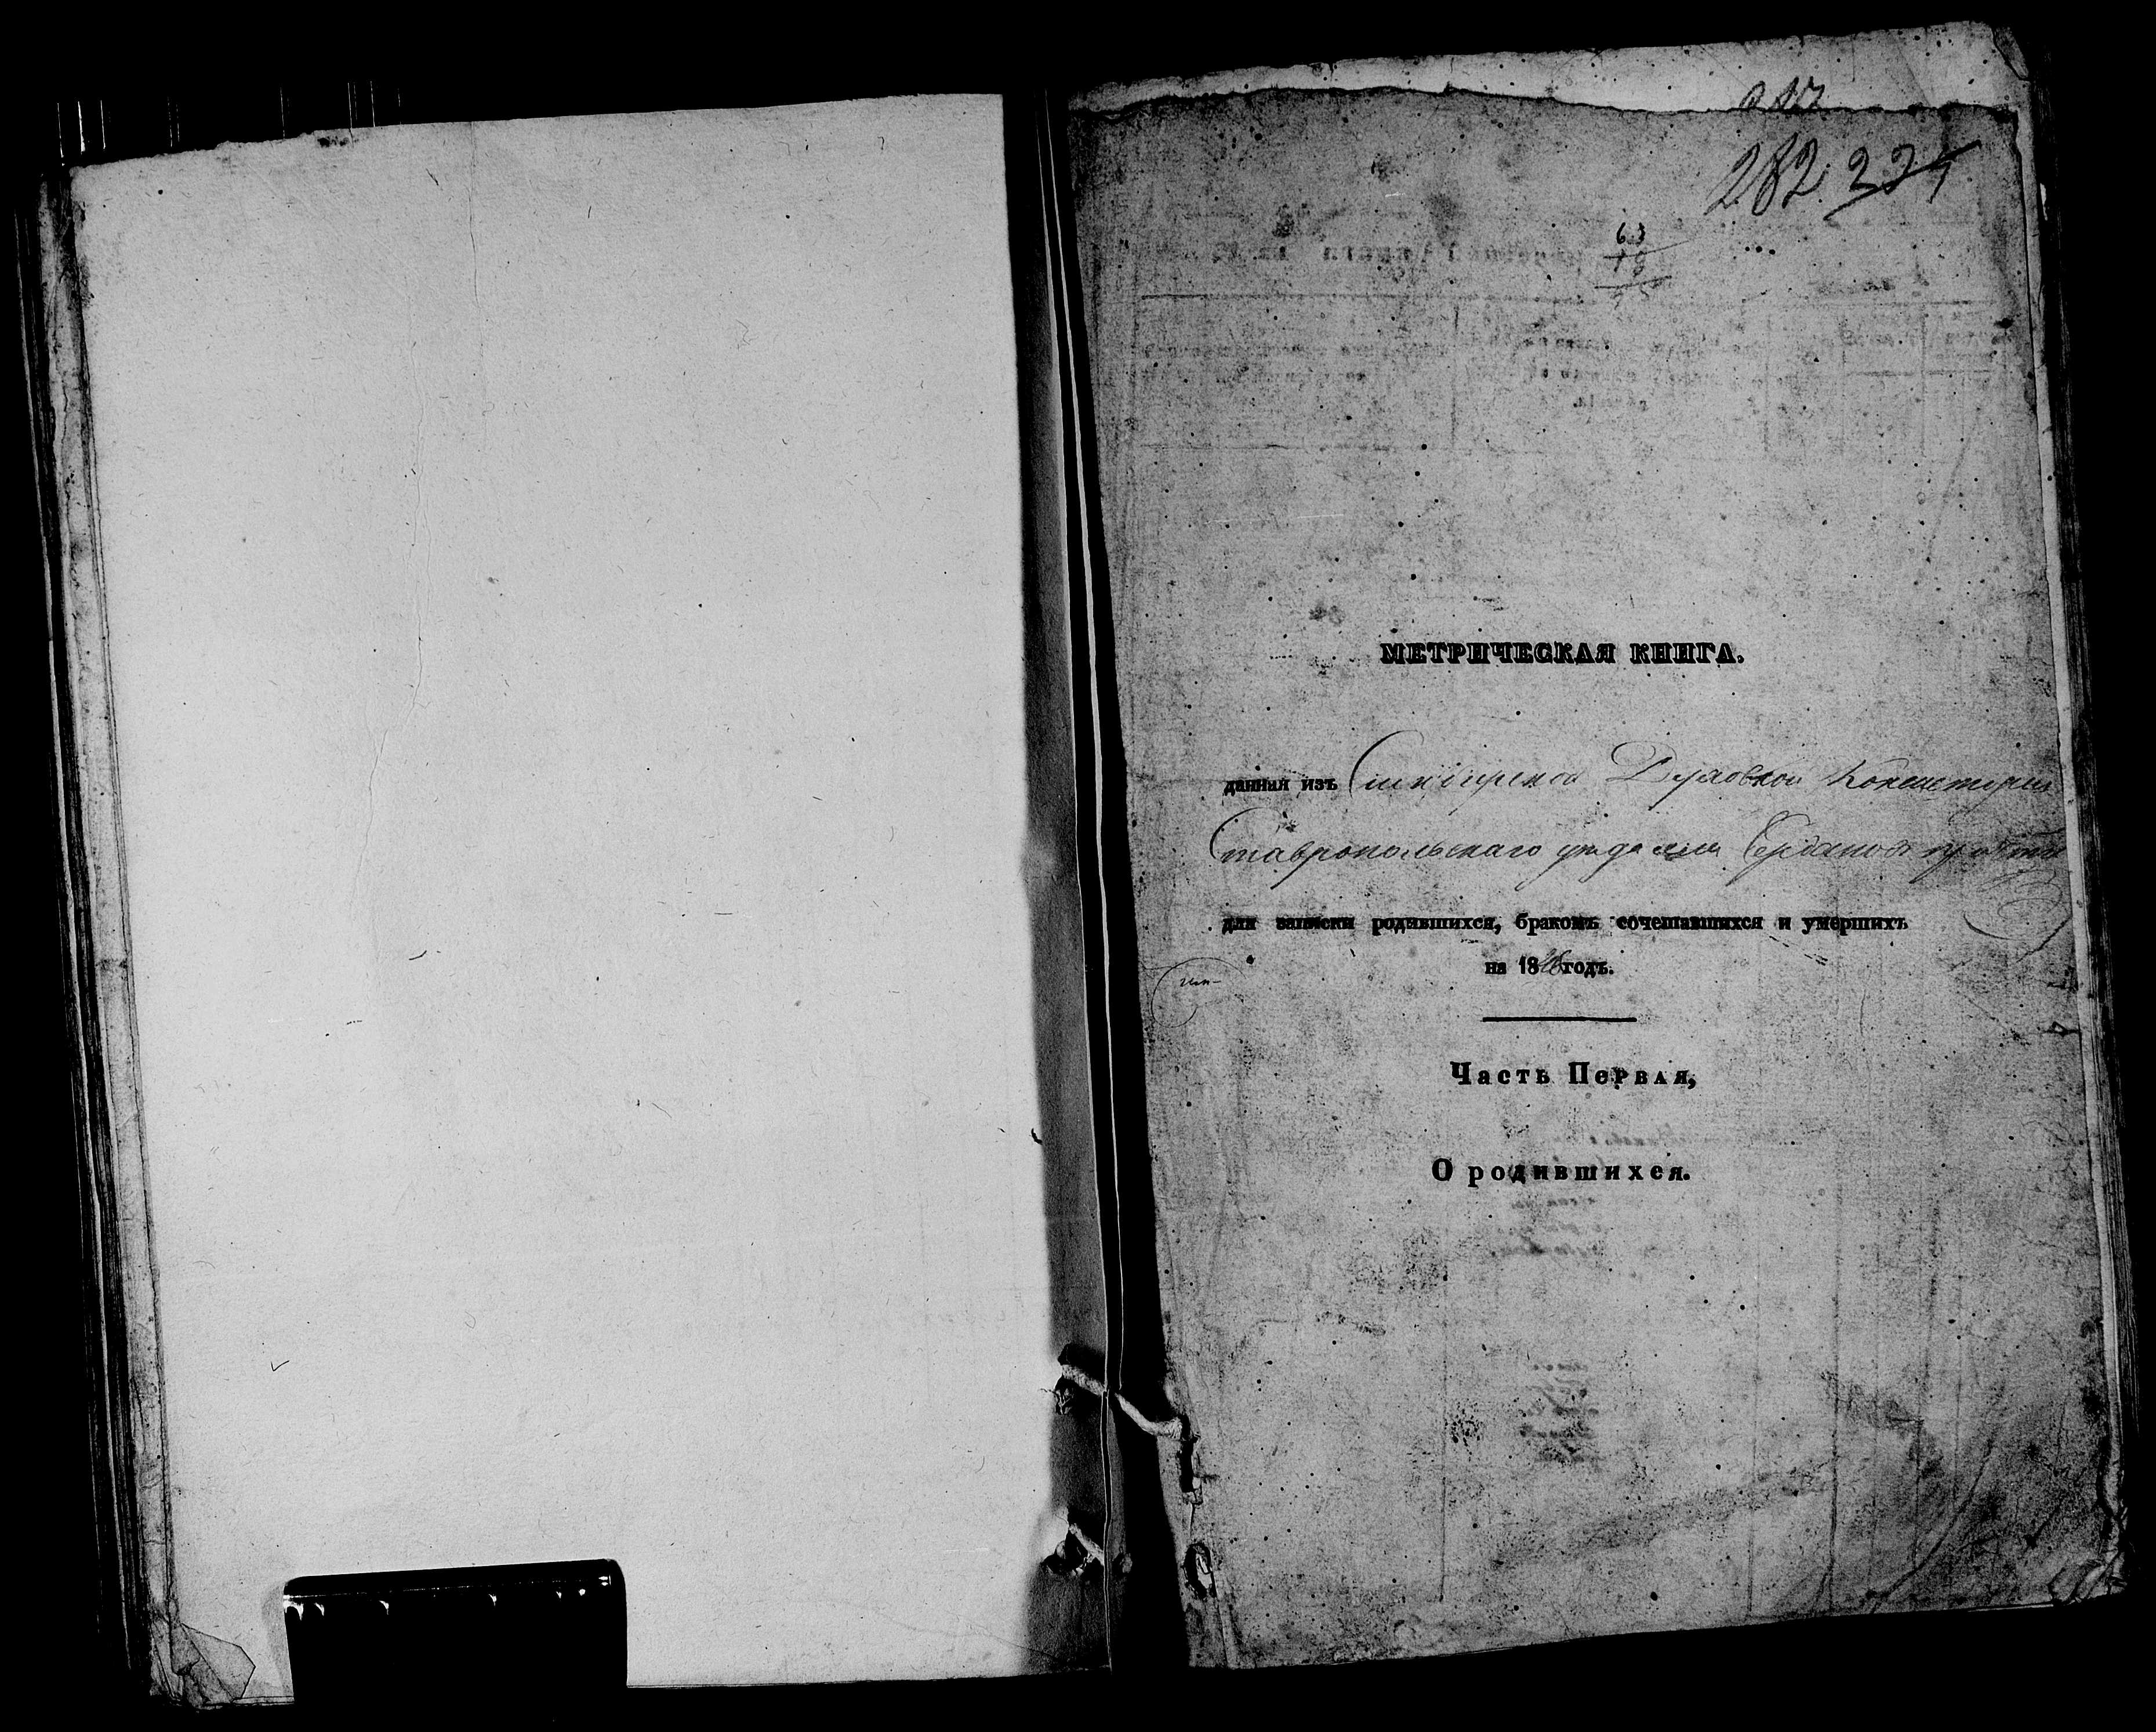 282 224
63
МЕТРИЧЕСКАЯ КНИГА.
данная изъ Симбирской Духовной Консисторіи
Ставропольскаго уѣзда села
для записки родившихся, бракомъ сочетавшихся и умершихъ
на 18 годъ.
Часть Первая,
О родившихся.